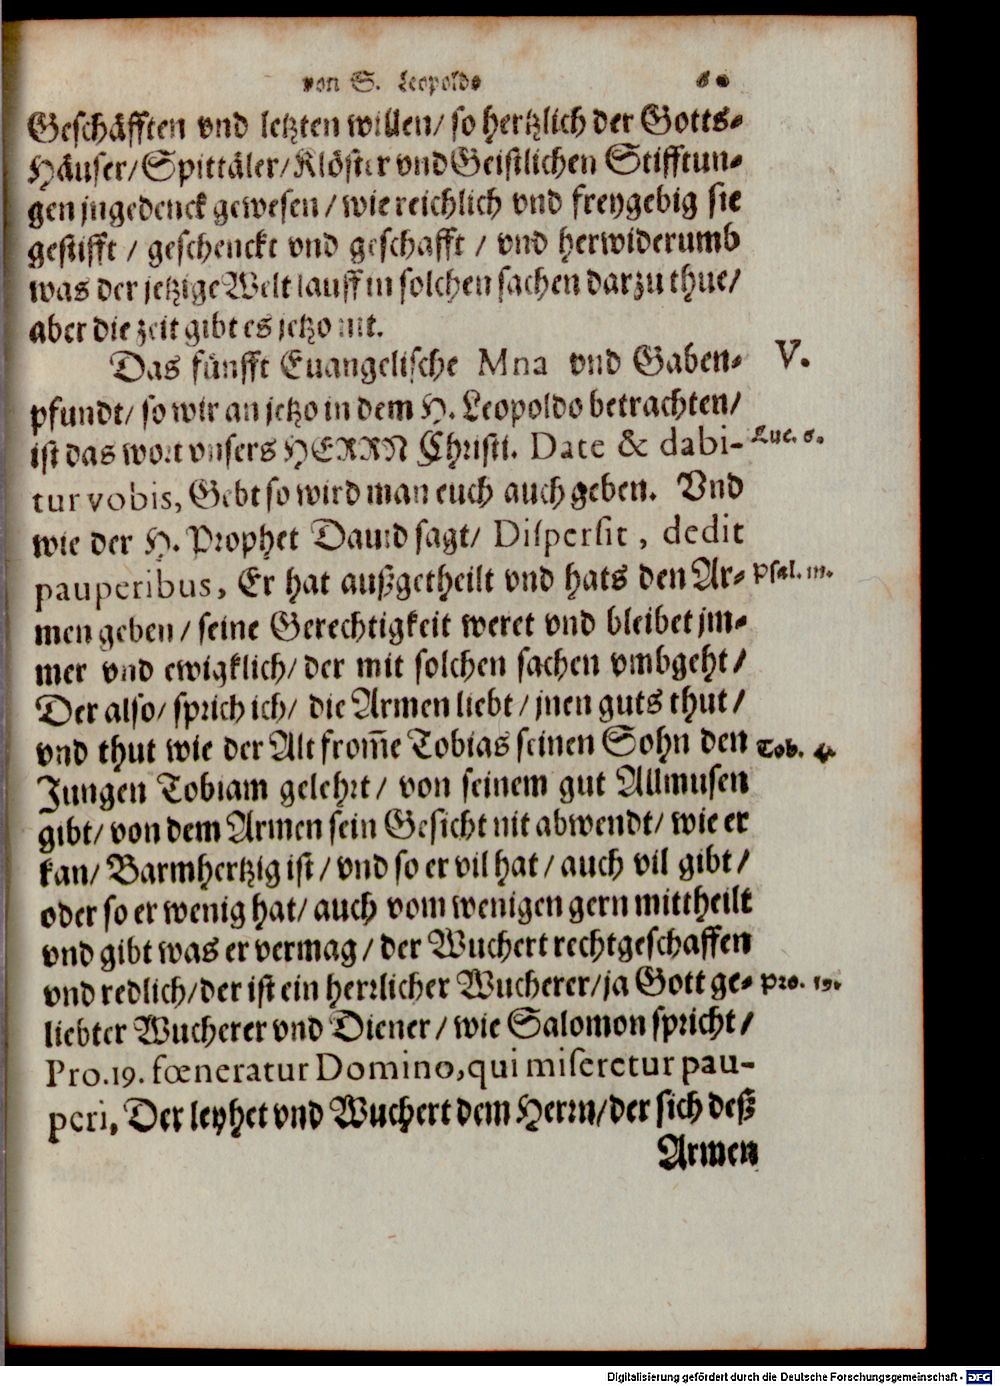 von S. Leopoldo
Geschäfften vnd letzten willen/ so hertzlich der Gotts-
Häuser/ Spittäler/ Klöster vnd Geistlichen Stifftun-
gen jngedenck gewesen/ wie reichlich vnd freygebig sie
gestifft / geschenckt vnd geschafft / vnd herwiderumb
was der jetzige Welt lauff in solchen sachen darzu thue/
aber die zeit gibt es jetzo nit.
Das fünfft Euangelische Mna vnd Gaben- V.
pfundt/ so wir an jetzo in dem H. Leopoldo betrachten/
ist das wort vnsers HERRN Christi. Date & dabi- Luc. 6.
tur vobis, Gebt so wird man euch auch geben. Vnd
wie der H. Prophet Dauid sagt/ Dispersit, dedit
pauperibus, Er hat außgetheilt vnd hats den Ar- Psal. 111.
men geben/ seine Gerechtigkeit weret vnd bleibet jm-
mer vnd ewigklich/ der mit solchen sachen vmbgeht/
Der also/ sprich ich/ die Armen liebt/ jnen guts thut/
vnd thut wie der Alt from̄e Tobias seinen Sohn den Tob. 4.
Jungen Tobiam gelehrt/ von seinem gut Allmusen
gibt/ von dem Armen sein Gesicht nit abwendt/ wie er
kan/ Barmhertzig ist/ vnd so er vil hat/ auch vil gibt/
oder so er wenig hat/ auch vom wenigen gern mittheilt
vnd gibt was er vermag/ der Wuchert rechtgeschaffen
vnd redlich/ der ist ein herrlicher Wucherer/ ja Gott ge- Pro. 19.
liebter Wucherer vnd Diener/ wie Salomon spricht/
Pro. 19. fœneratur Domino, qui miseretur pau-
peri, Der leyhet vnd Wuchert dem Herrn/ der sich deß
Armen
Digitalisierung gefördert durch die Deutsche Forschungsgemeinschaft - DFG